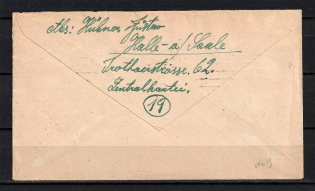 Abs: Hübner Gustav
Halle-a/Saale
Trothaerstrasse. 62.
Zentralkartei.
19